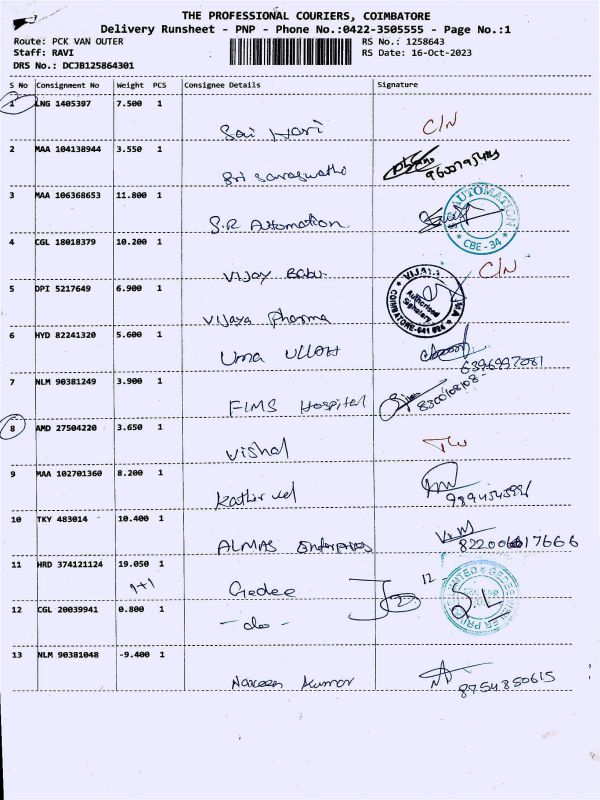 THE PROFESSIONAL COURIERS, COIMBATORE
Delivery Runsheet - PNP - Phone No.:0422-3505555 - Page No.:1
Route: PCK VAN OUTER RS No.: 1258643
Staff: RAVI RS Date: 16-Oct-2023
DRS No.: DCJB125864301
S No Consignment No Weight PCS Consignee Details Signature
1 LNG 1405397 7.500 1
Sai Hari C/N
2 MAA 104138944 3.550 1
Sri Saraswathi
3 MAA 106368653 11.800 1
S.R Automation AUTOMATION CBE - 34
4 CGL 18018379 10.200 1
Vijay Babu C/N
5 DPI 5217649 6.900 1
Vijaya Pharma VIJAYA Authorised Signatory COIMBATORE-641
6 HYD 82241320 5.600 1
Uma ULLAH 6396997081
7 NLM 90381249 3.900 1
FIMS Hospital 8300168108
8 AMD 27504220 3.650 1
Vishal
9 MAA 102701360 8.200 1
Kathirvel
10 TKY 483014 10.400 1
ALMAS Enterprises
11 HRD 374121124 19.050 1
1+1 Gedee 12
12 CGL 20039941 0.800 1
- do - 2
13 NLM 90381048 -9.400 1
Naveen Kumar 8754850615